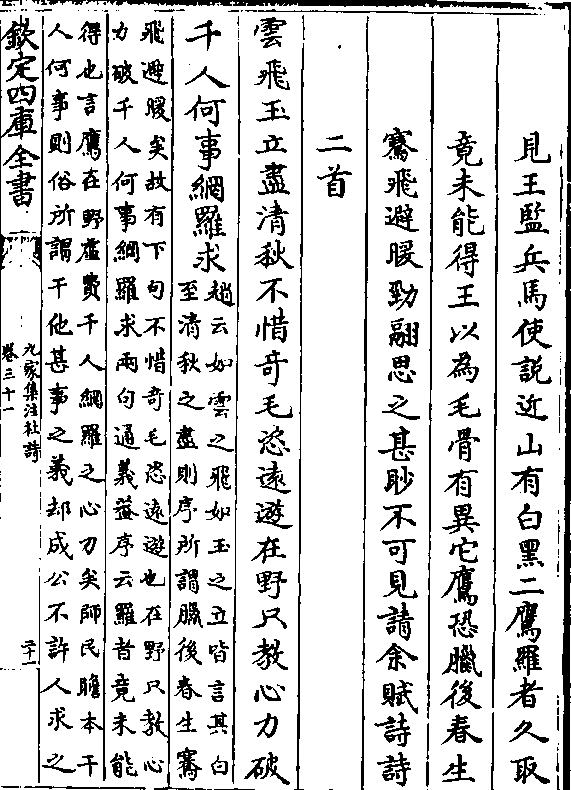 見王監兵馬使説近山有白黑二鷹羅者久取
竟未能得王以為毛骨有異它鷹恐臘後春生
騫飛避暖勁翮思之甚眇不可見請余賦詩詩
二首
雲飛玉立盡清秋不惜奇毛恣遠遊在野只教心力破
千人何事網羅求
趙云如雲之飛如玉之立皆言其白
至清秋之盡則序所謂臘後春生騫
飛避暖矣故有下句不惜奇毛恣遠遊也在野只教心
力破千人何事網羅求兩句通義蓋序云羅者竟未能
得也言鷹在野虛費千人網羅之心力矣師民瞻本千
人何事則俗所謂干他甚事之義却成公不許人求之
欽定四庫全書
九家集注杜詩
卷三十一
二十一